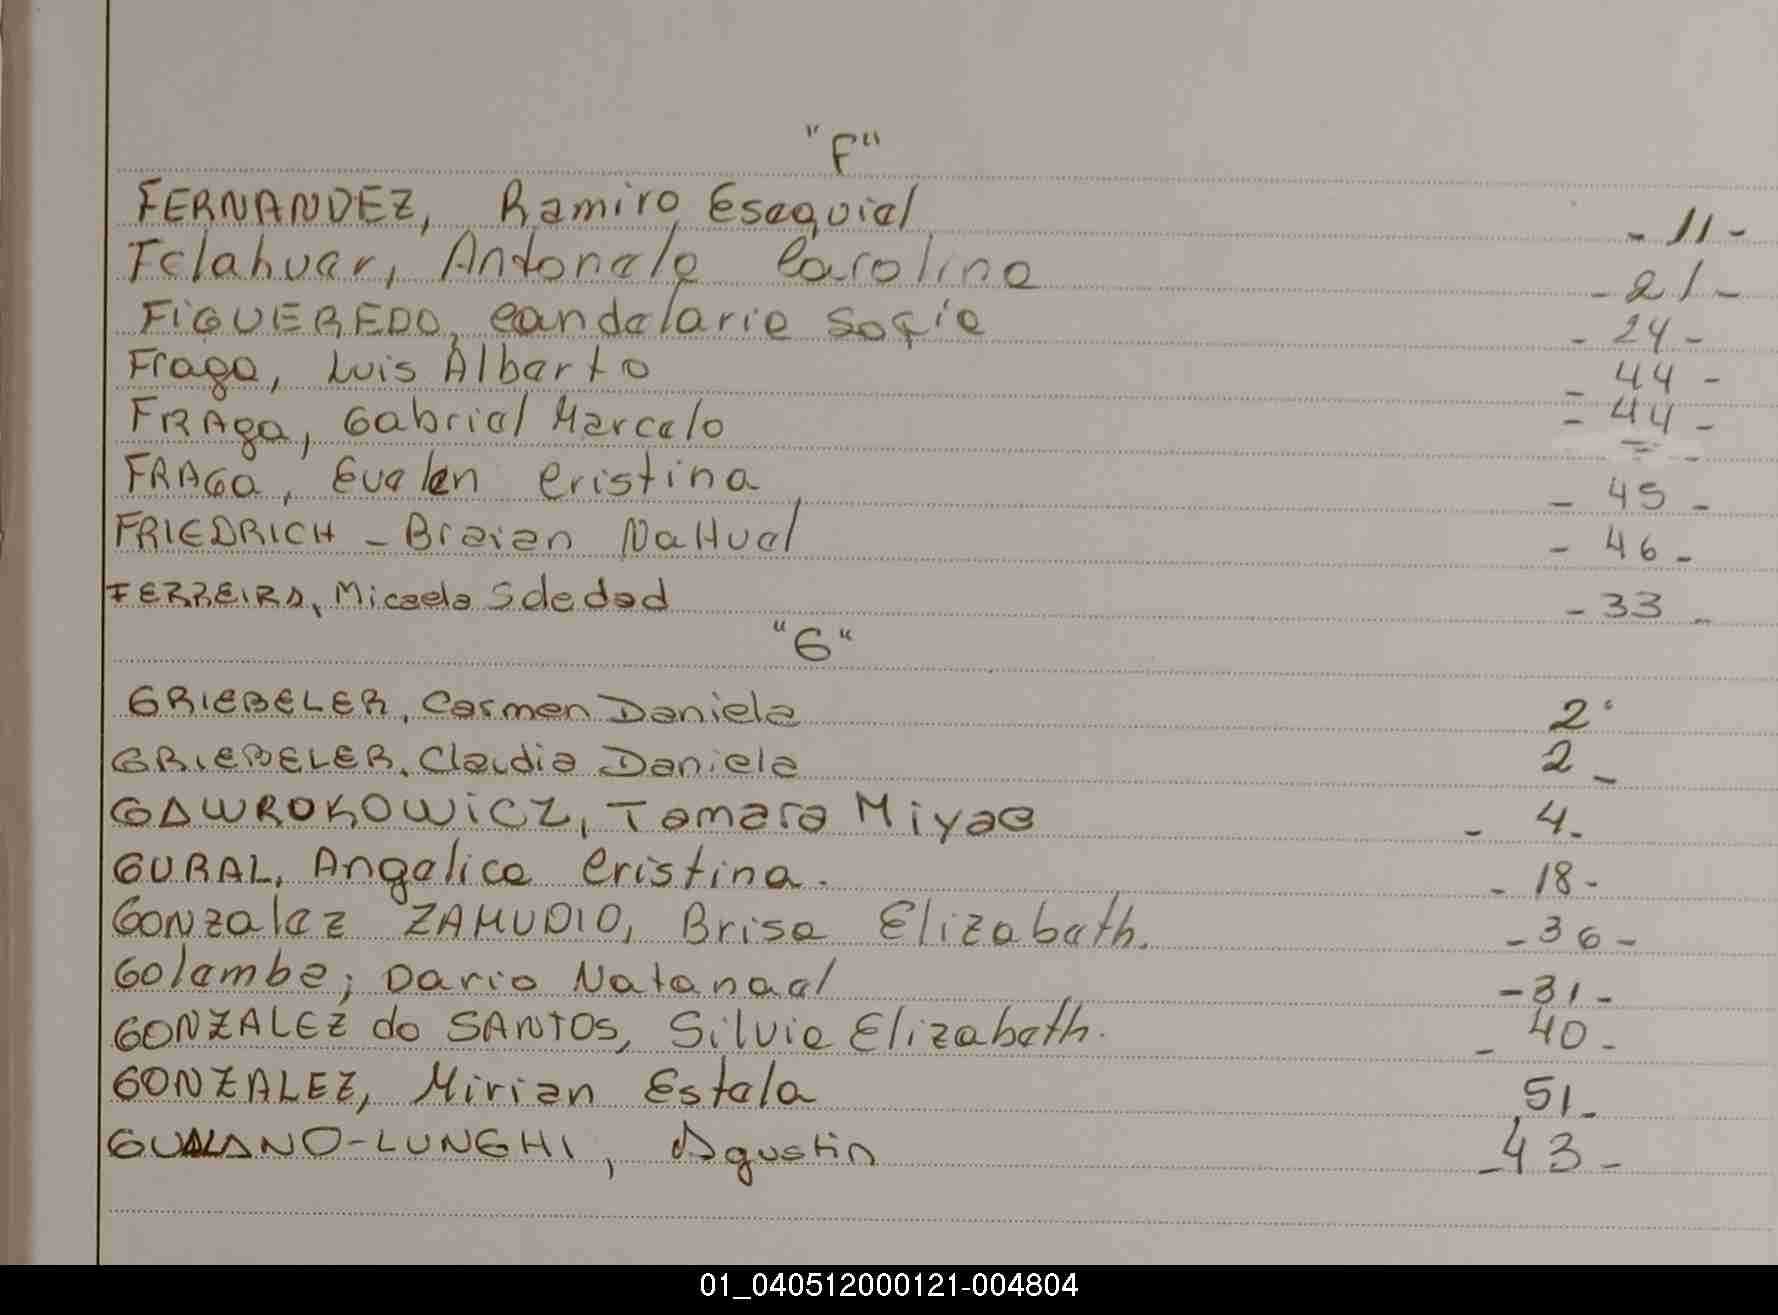 "F"
FERNANDEZ, Ramiro Esequiel - 11 -
Felahuer, Antonela Carolina - 21 -
FiGUEREDO, Candelaria Sofia - 24 -
Fraga, Luis Alberto - 44 -
FRAga, Gabriel Marcelo - 44 -
FRAGa, Evelen Cristina - 45 -
FRIEDRICH - Braian NaHuel - 46 -
FERREIRA, Micaela Soledad - 33 -
"G"
GRIEBELER, Carmen Daniela 2
GRIEBELER, Claudia Daniela 2 -
GAWROKOWiCZ, Tamara Miyae - 4 -
GURAL, Angelica Cristina. - 18 -
GONzalez ZAMUDIO, Brisa Elizabeth. - 36 -
Golembe; Dario Natanael - 31 -
GONZALEZ do SANTOS, Silvia Elizabeth. - 40 -
GONZALEZ, Mirian Estela 51 -
GUALANO-LUNGHI, Agustin - 43 -
01_040512000121-004804